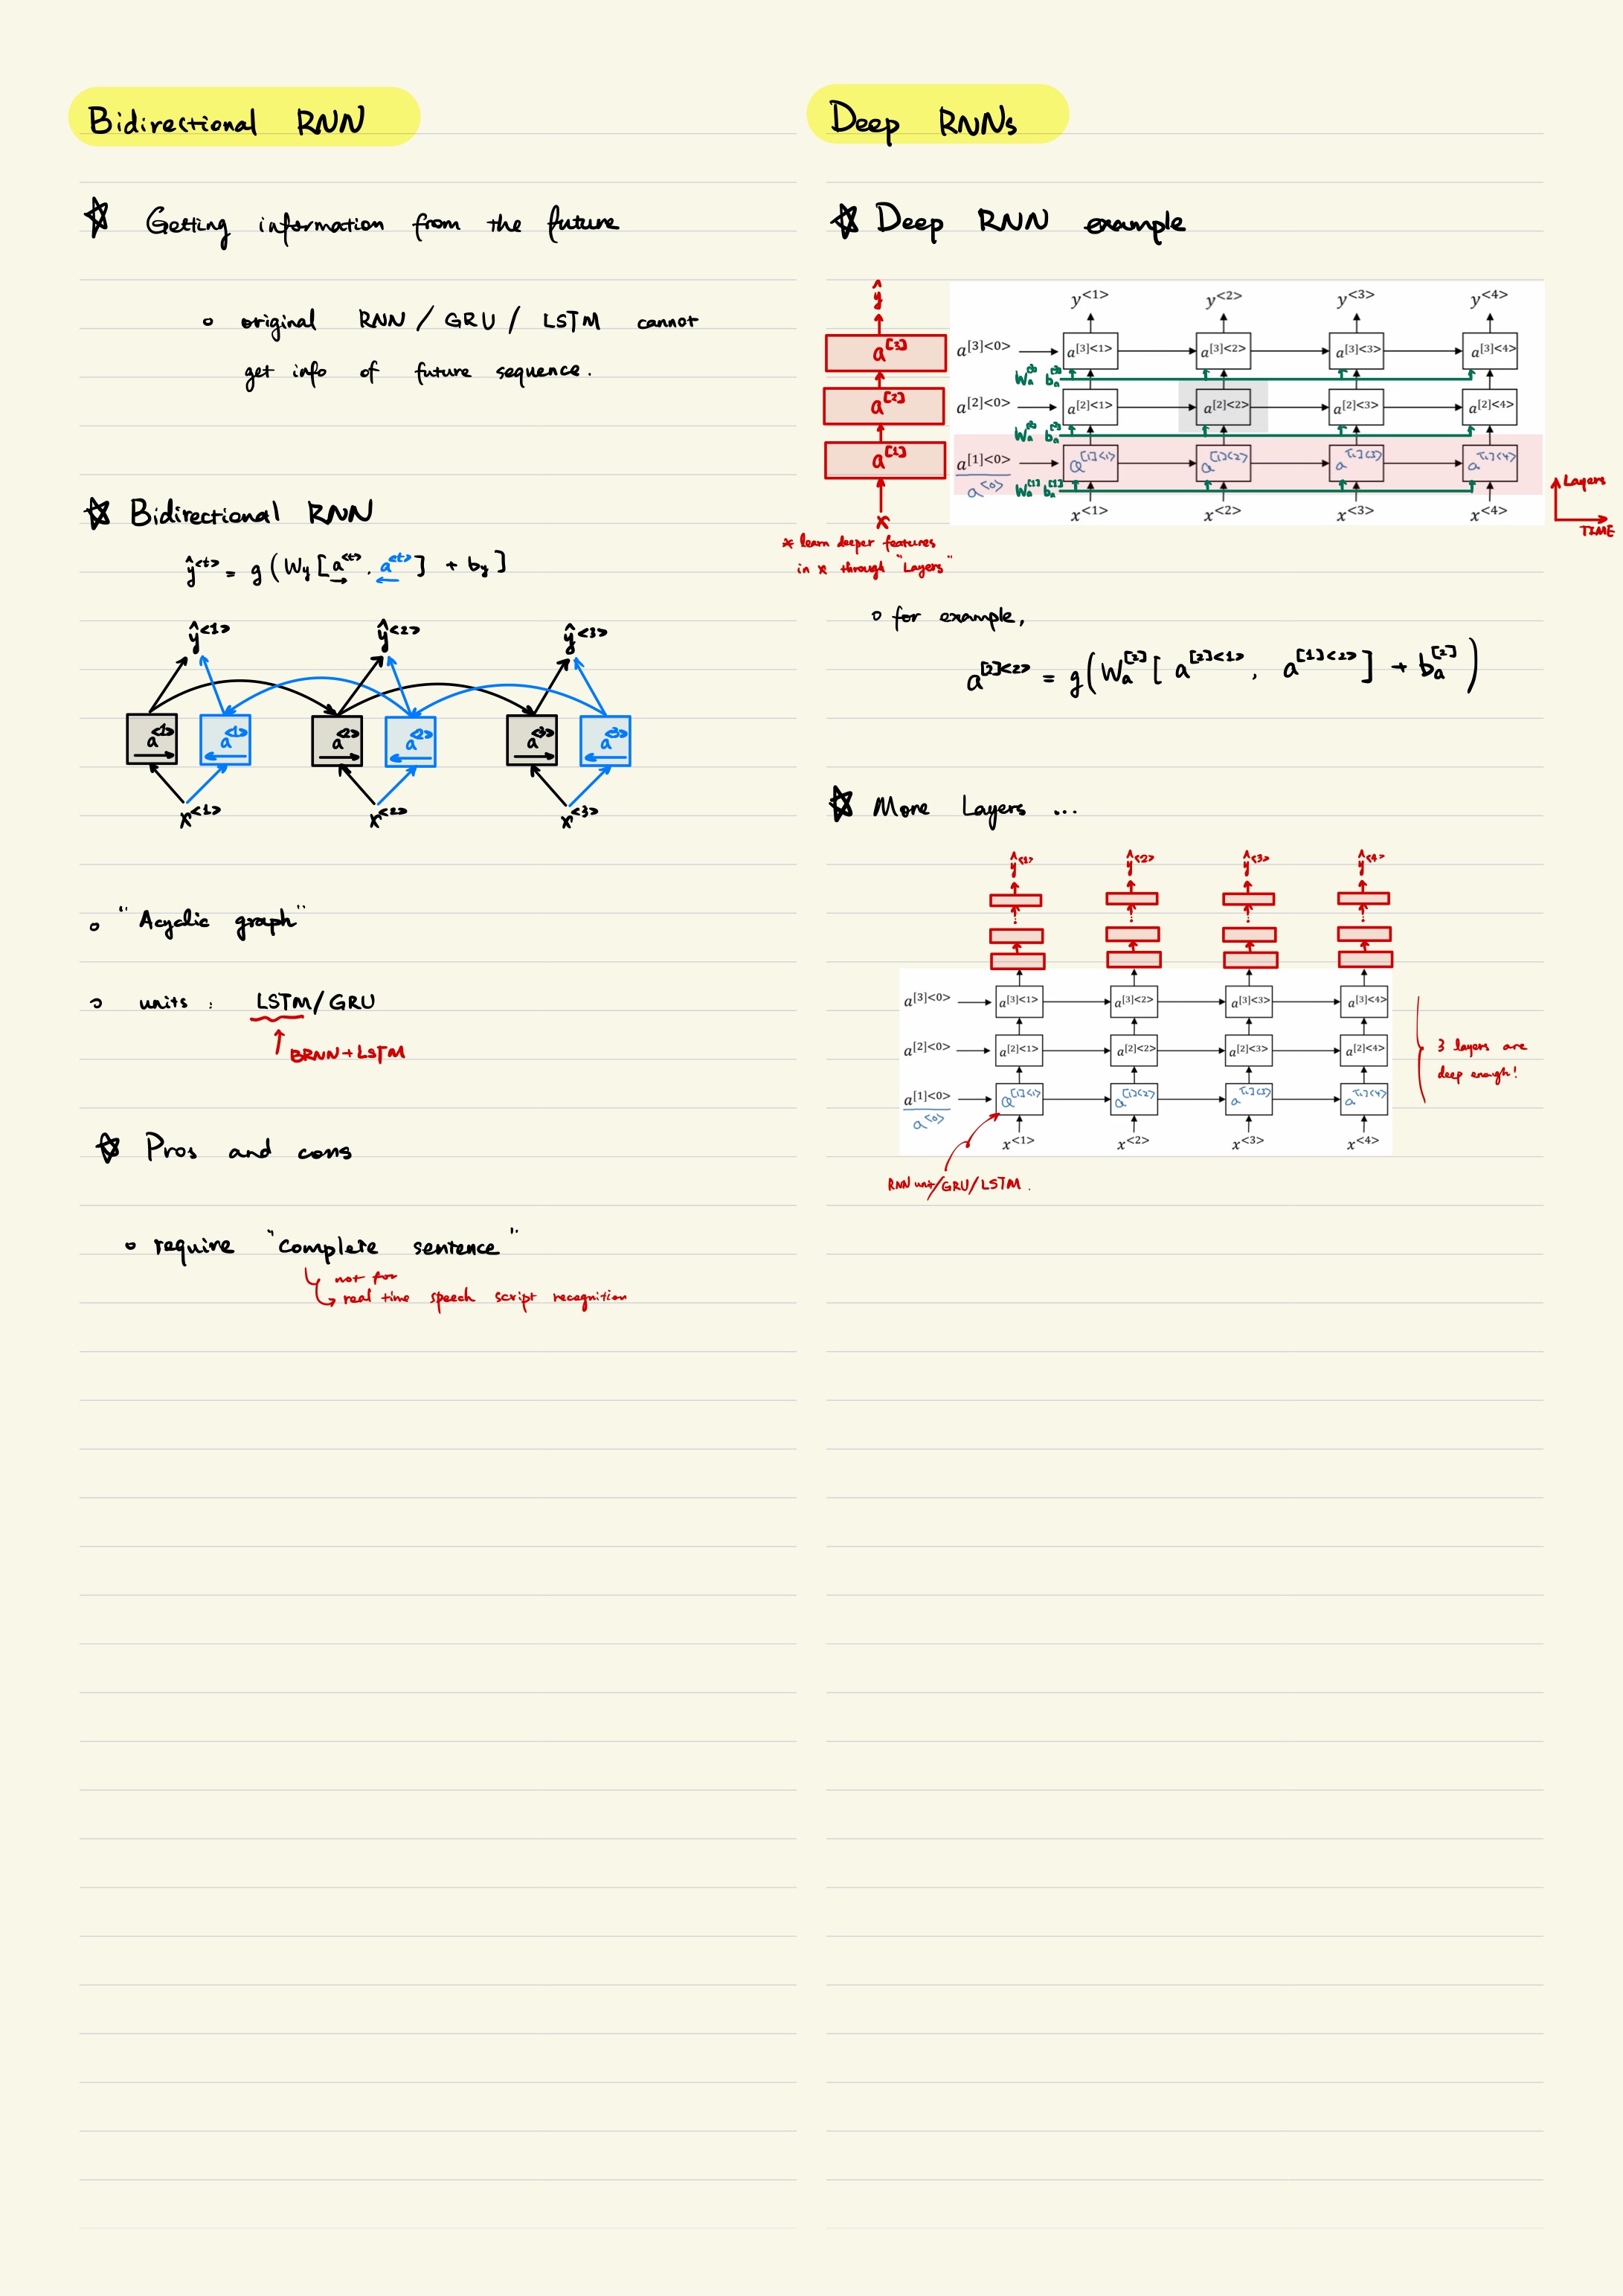 Bidirectional RNN
Getting information from the future
original RNN / GRU / LSTM cannot
get info of future sequence.
Bidirectional RNN
ŷ<t> = g(Wy[a<t>, a<t>] + by]
ŷ<1> ŷ<2> ŷ<3>
a<1> a<1> a<2> a<2> a<3> a<3>
x<1> x<2> x<3>
"Acyclic graph"
units : LSTM/GRU
BRNN+LSTM
Pros and cons
require "complete sentence"
not for
real time speech script recognition
Deep RNNs
Deep RNN example
ŷ
a[3]
a[2]
a[1]
x
* learn deeper features
in x through "Layers"
y<1> y<2> y<3> y<4>
a[3]<0> a[3]<1> a[3]<2> a[3]<3> a[3]<4>
Wa[3] ba[3]
a[2]<0> a[2]<1> a[2]<2> a[2]<3> a[2]<4>
Wa[2] ba[2]
a[1]<0> a[1]<1> a[1]<2> a[1]<3> a[1]<4>
a[0]
Wa[1] ba[1]
x<1> x<2> x<3> x<4>
Layers
TIME
for example,
a[2]<2> = g(Wa[2][a[2]<1>, a[1]<2>] + ba[2])
More Layers ...
ŷ<1> ŷ<2> ŷ<3> ŷ<4>
a[3]<0> a[3]<1> a[3]<2> a[3]<3> a[3]<4>
a[2]<0> a[2]<1> a[2]<2> a[2]<3> a[2]<4>
a[1]<0> a[1]<1> a[1]<2> a[1]<3> a[1]<4>
a[0]
x<1> x<2> x<3> x<4>
3 layers are
deep enough!
RNN unit/GRU/LSTM.